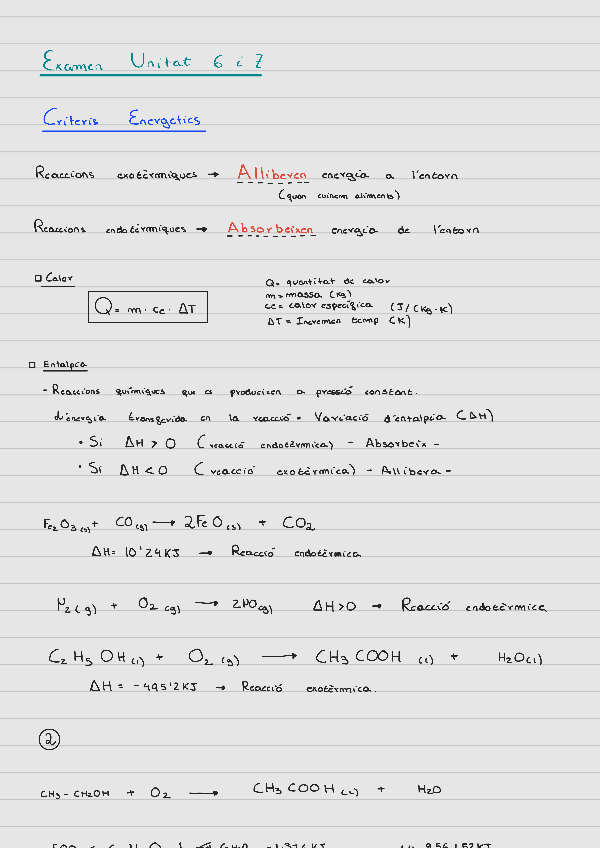 Examen Unitat 6 i 7
Criteris Energetics
Reaccions exotèrmiques → Alliberen energia a l'entorn
(quan cuinem aliments)
Reaccions endotèrmiques → Absorbeixen energia de l'entorn
Calor
Q = m · ce · ΔT
Q = quantitat de calor
m = massa (Kg)
ce = calor especifica (J/(Kg·K)
ΔT = Incremen temp (K)
Entalpia
- Reaccions químiques que es produeixen a pressió constant.
d'energia transferida en la reacció = Variació d'entalpia (ΔH)
· Si ΔH > 0 (reacció endotèrmica) - Absorbeix -
· Si ΔH < 0 (reacció exotèrmica) - Allibera -
Fe2O3(s) + CO(g) → 2FeO(s) + CO2
ΔH = 10'24KJ → Reacció endotèrmica
N2(g) + O2(g) → 2NO(g) ΔH>0 → Reacció endotèrmica
C2H5OH(l) + O2(g) → CH3COOH(l) + H2O(l)
ΔH = -495'2KJ → Reacció exotèrmica.
2
CH3-CH2OH + O2 → CH3COOH(l) + H2O